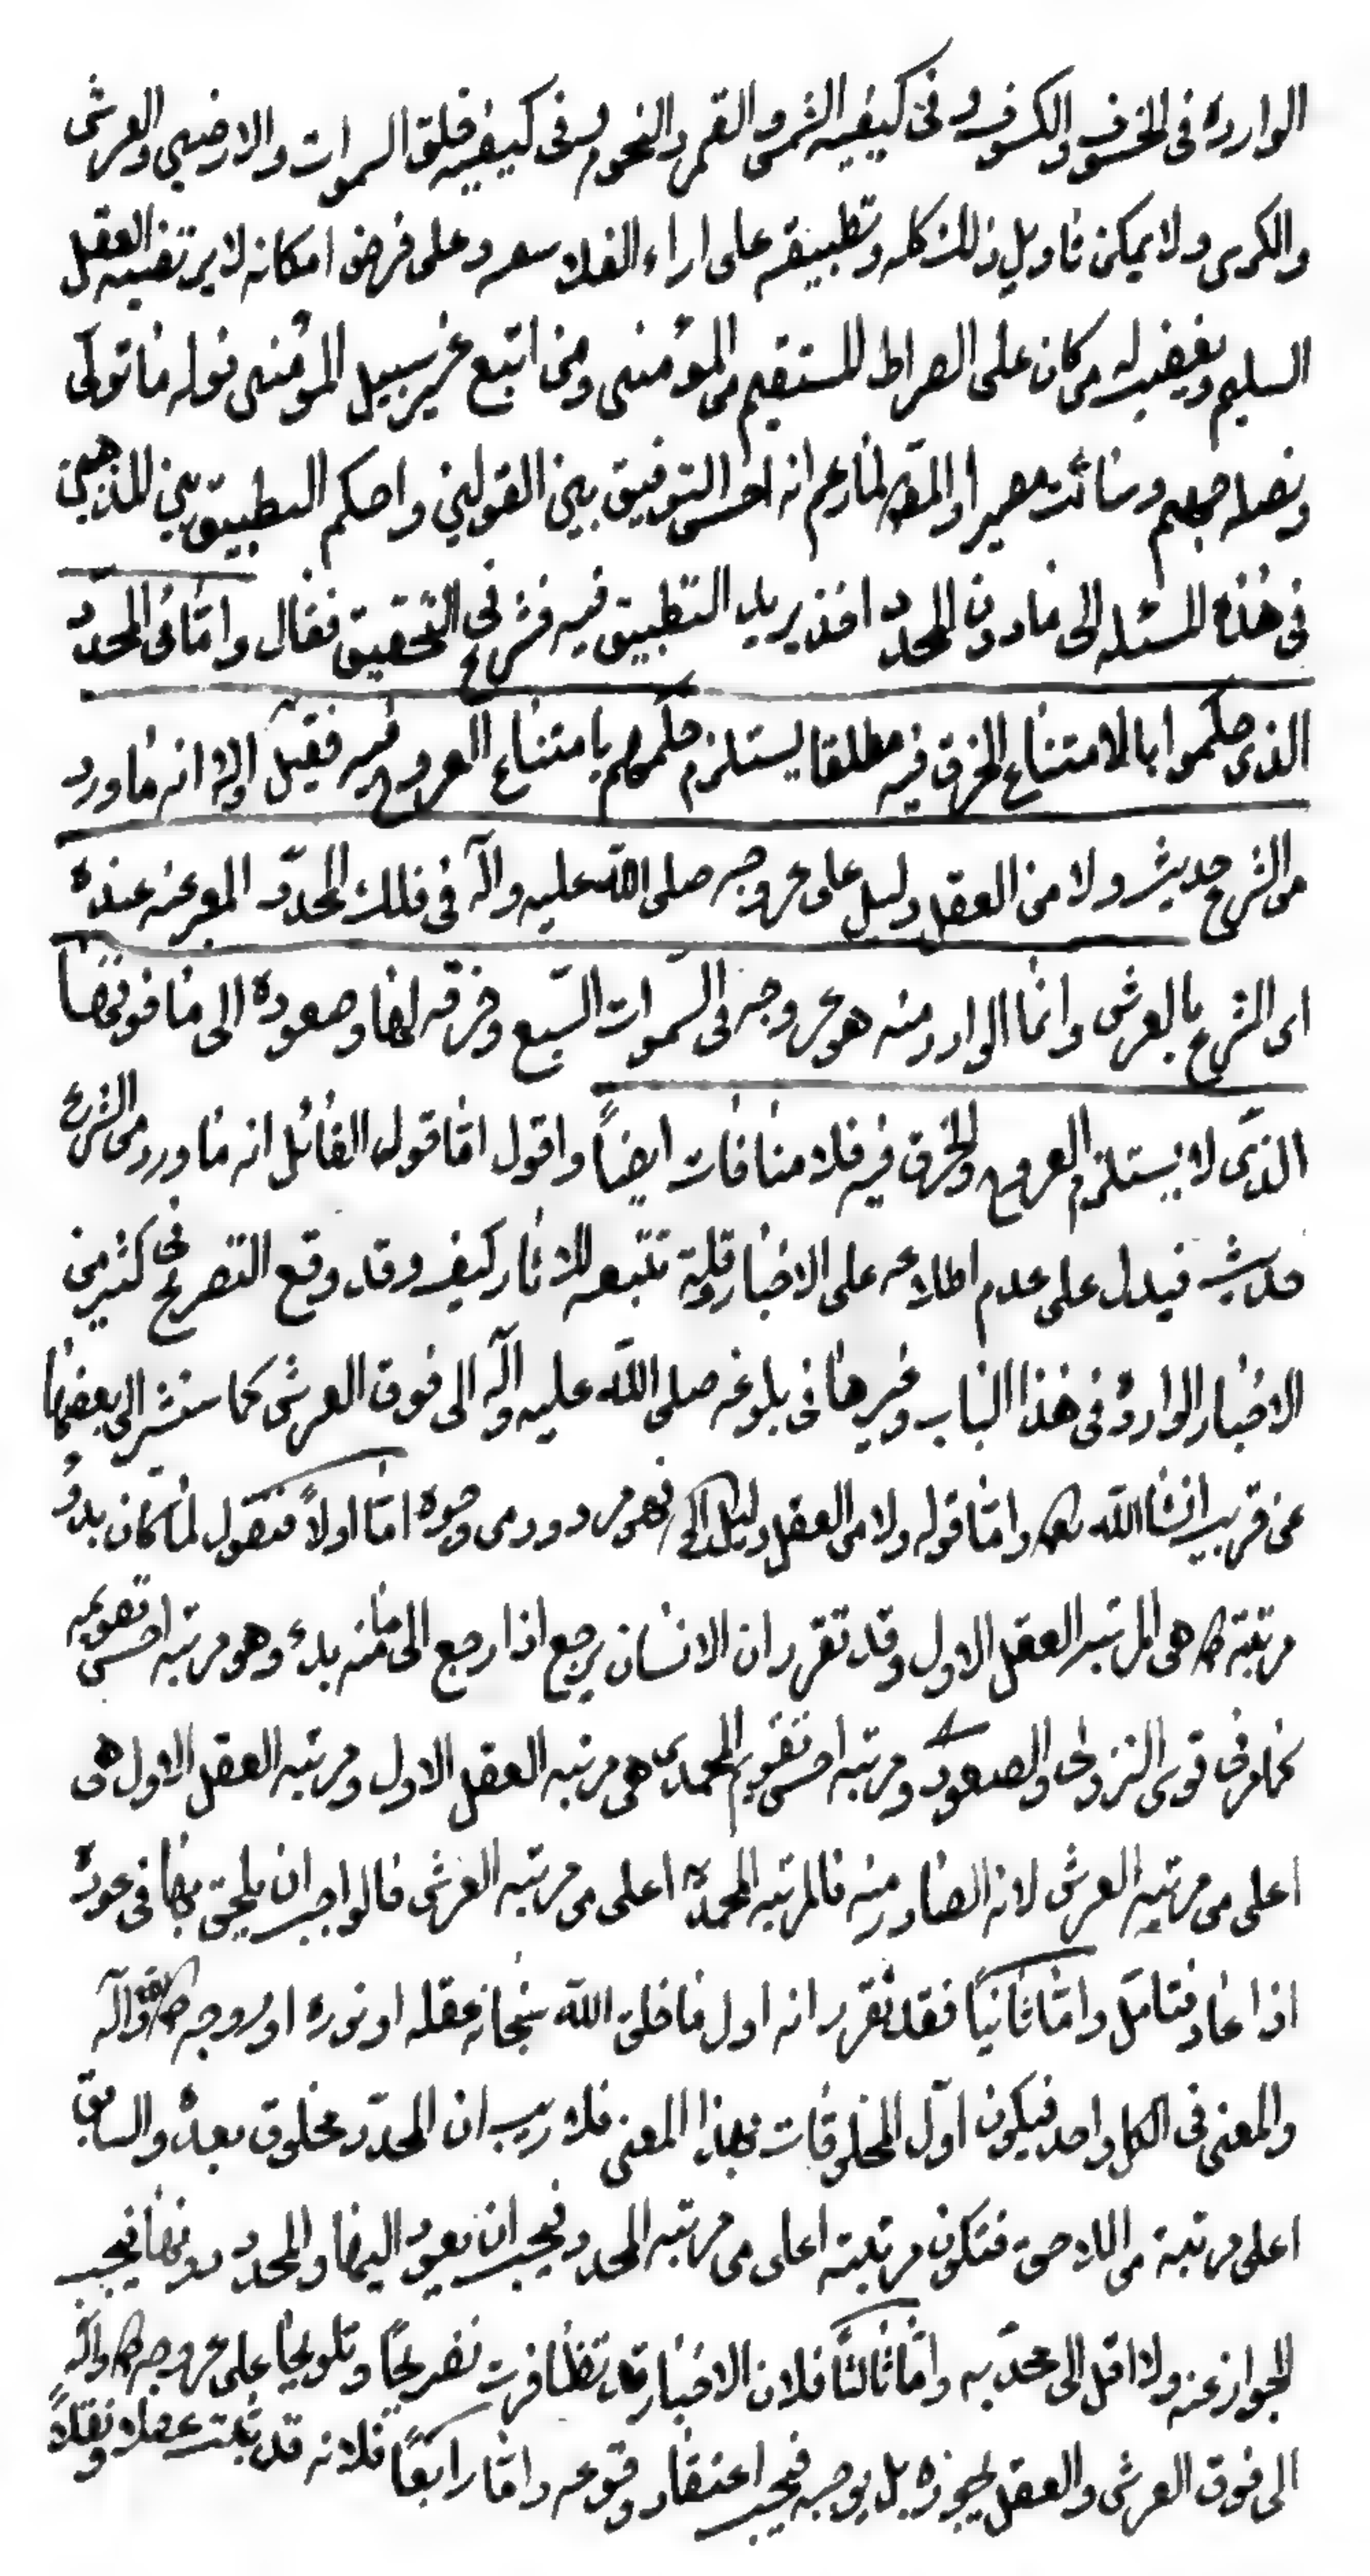 الواردة في الخسوف والكسوف وفي كيفيه الشمس والقمر والنجوم وفي كيفيه خلق السموات والارضين والعرش
والكرسي ولا يمكن تاويل ذلك كله وتطبيقه على اراء الفلاسفه وعلى فرض امكانه لا يرتضيه العقل
السليم ويغضب له من كان على الصراط المستقيم من المؤمنين ومن اتبع غير سبيل المؤمنين نوله ما تولى
ونصله جهنم وسائت مصيرا والمص لما زعم انه احسن التوفيق بين القولين واحكم التطبيق بين المذهبين
في هذه المسئله الى مادون المحدد اخذ يريد التطبيق فيه فشرع في التحقيق فقال واما في المحدد
الذي حكموا بالامتناع الخرق فيه مطلقا يستلزم حكمهم بامتناع العروج فيه فقيل اولا انه ما ورد
من الشرع حديث ولا من العقل دليل على عروجه صلى الله عليه وآله في فلك المحدد المعبر عنه عنده
اى الشرع بالعرش وانما الوارد منه هو عروجه في السموات السبع وخرقه لها وصعوده الى ما فوقها
الذي لا يستلزم العروج والخرق فيه فلا منافات ايضاً واقول اما قول القائل انه ما ورد من الشرع
حديث فيدل على عدم اطلاعه على الاخبار وقلة تتبعه للاثار كيف وقد وقع التصريح في كثير من
الاخبار الواردة في هذا الباب وغيرها في بلوغه صلى الله عليه وآله الى فوق العرش كما سنشير الى بعضها
عن قريب انشا الله تعالى واما قوله ولا من العقل دليل الخ فهو مردود من وجوه اما اولاً فنقول لما كان بدو
مرتبة ص هي المرتبه العقل الاول وقد تقرر ان الانسان يرجع اذا رجع الى ما منه بدء وهو مرتبه احسن تقويمه
كما مر في قوى النزولى والصعودى ومرتبه احسن تقويم المحمدى هى مرتبه العقل الاول ومرتبه العقل الاول هى
اعلى من مرتبه العرش لانه الصادر منه فالمرتبه المحمديه اعلى من مرتبه العرش فالواجب ان يلحق بها في عوده
اذا عاد فتامل واما ثانياً فقد تقرر انه اول ما خلق الله سبحانه عقله او نوره او روحه ص وآله
والمعنى في الكل واحد فيكون اول المخلوقات بهذا المعنى فلا ريب ان المحدد مخلوق بعده والسابق
اعلى مرتبة من اللاحق فتكون مرتبته اعلى من مرتبه المحدد فيجب ان يعود اليها والمحدد دونها فيجب
الجواز عنه ولا اقل الى محدبه واما ثالثاً فلان الاخبار قد تظافرت تصريحاً وتلويحاً على عروجه ص وآله
الى فوق العرش والعقل يجوزه بل يوجبه فيجب اعتقاد وقوعه واما رابعاً فلانه قد ثبت عقلا ونقلاً